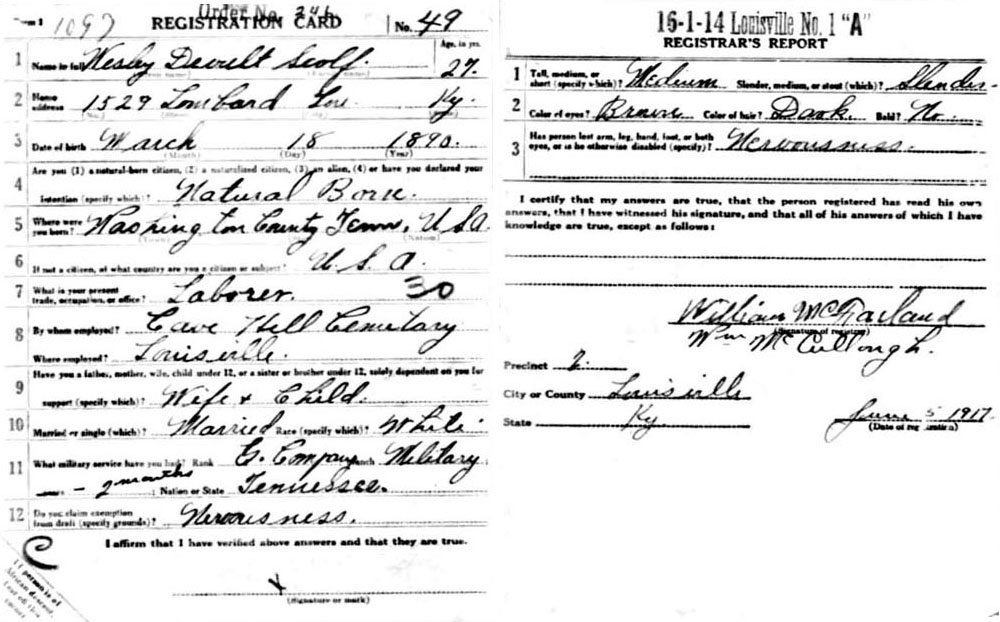 Form 1 1097 Order No. 246 REGISTRATION CARD No. 49
1 Name in full Wesley Scolf. Age, in yrs. 27.
2 Home address 1529 Lombard Lou Ky.
(No.)
3 Date of birth March 18 1890.
(Month) (Day) (Year)
4 Are you (1) a natural-born citizen, (2) a naturalized citizen, (3) an alien, (4) or have you declared your
intention (specify which)? Natural Born.
5 Where were you born? Washington County Tenn. U S A.
(Town) (Nation)
6 If not a citizen, of what country are you a citizen or subject? U. S. A.
7 What is your present trade, occupation, or office? Laborer. 30
8 By whom employed? Cave Hill Cemetary
Where employed? Louisville.
9 Have you a father, mother, wife, child under 12, or a sister or brother under 12, solely dependent on you for
support (specify which)? Wife & Child.
10 Married or single (which)? Married Race (specify which)? White
11 What military service have you had? Rank G. Company branch Military ;
years - 2 months ; Nation or State Tennessee.
12 Do you claim exemption from draft (specify grounds)? Nervousness.
I affirm that I have verified above answers and that they are true.
C
If person is of
African descent,
tear off this
corner
X
(Signature or mark)
16-1-14 Louisville No. 1 "A"
REGISTRAR'S REPORT
1 Tall, medium, or short (specify which)? Medium Slender, medium, or stout (which)? Slender
2 Color of eyes? Brown Color of hair? Dark Bald? No.
3 Has person lost arm, leg, hand, foot, or both eyes, or is he otherwise disabled (specify)? Nervousness.
I certify that my answers are true, that the person registered has read his own
answers, that I have witnessed his signature, and that all of his answers of which I have
knowledge are true, except as follows:
William McFarland
(Signature of registrar)
Wm McCullough.
Precinct 2
City or County Louisville
State Ky. June 5 1917.
(Date of registration)